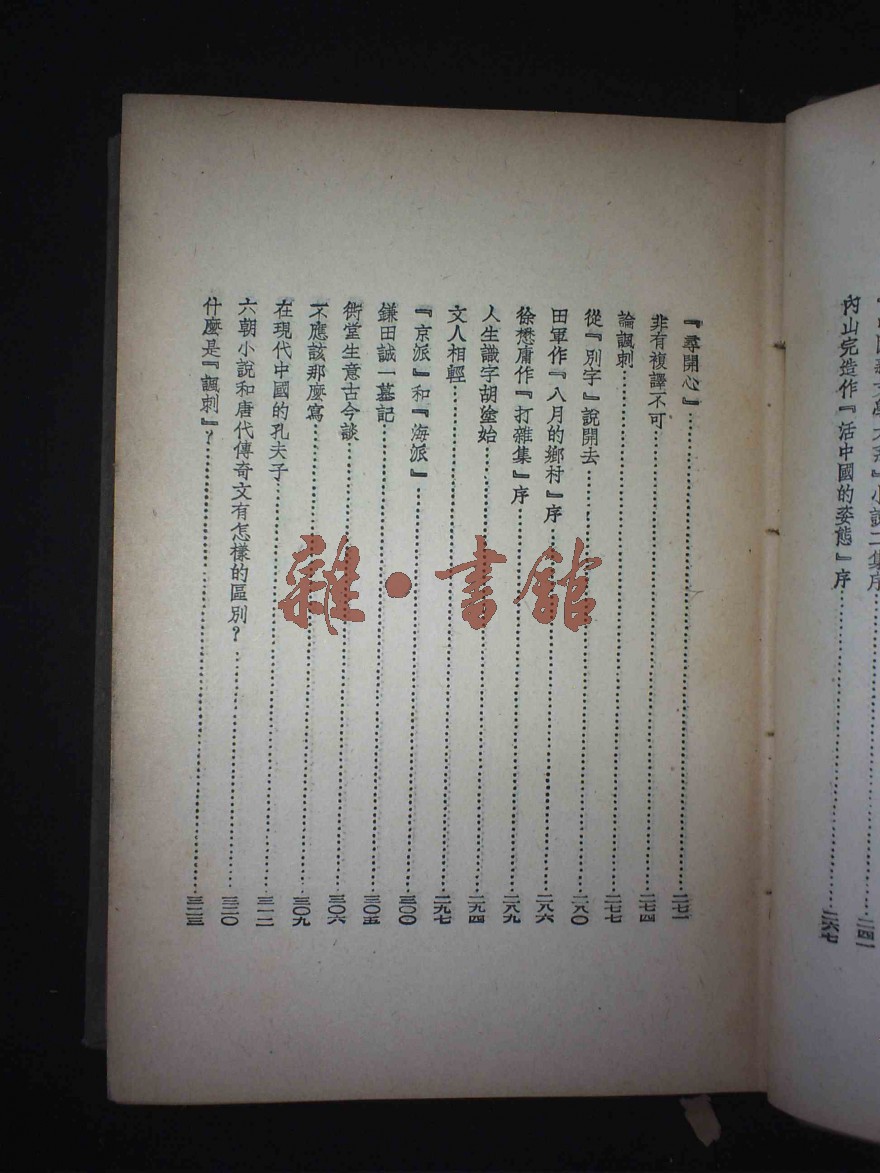 小說二集序……二四一
內山完造作『活中國的姿態』序……二六七
『尋開心』……二七一
非有複譯不可……二七四
論諷刺……二七七
從『別字』說開去……二八〇
田軍作『八月的鄉村』序……二八六
徐懋庸作『打雜集』序……二八九
人生識字胡塗始……二九四
文人相輕……二九七
『京派』和『海派』……三〇〇
鎌田誠一墓記……三〇五
衖堂生意古今談……三〇六
不應該那麼寫……三〇九
在現代中國的孔夫子……三一二
六朝小說和唐代傳奇文有怎樣的區別？……三二〇
什麼是『諷刺』？……三二三
雜·書館